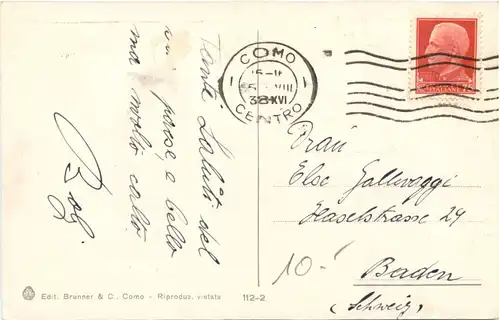 Tanti Saluti del
mi paese, e bello
ma molto caldo
COMO
38 XVI
CENTRO
ITALIANE
Frau
Else Gallivaggi
Haselstrasse 29
Baden
(Schweiz)
10.-
Edit. Brunner & C., Como - Riproduz. vietata 112-2